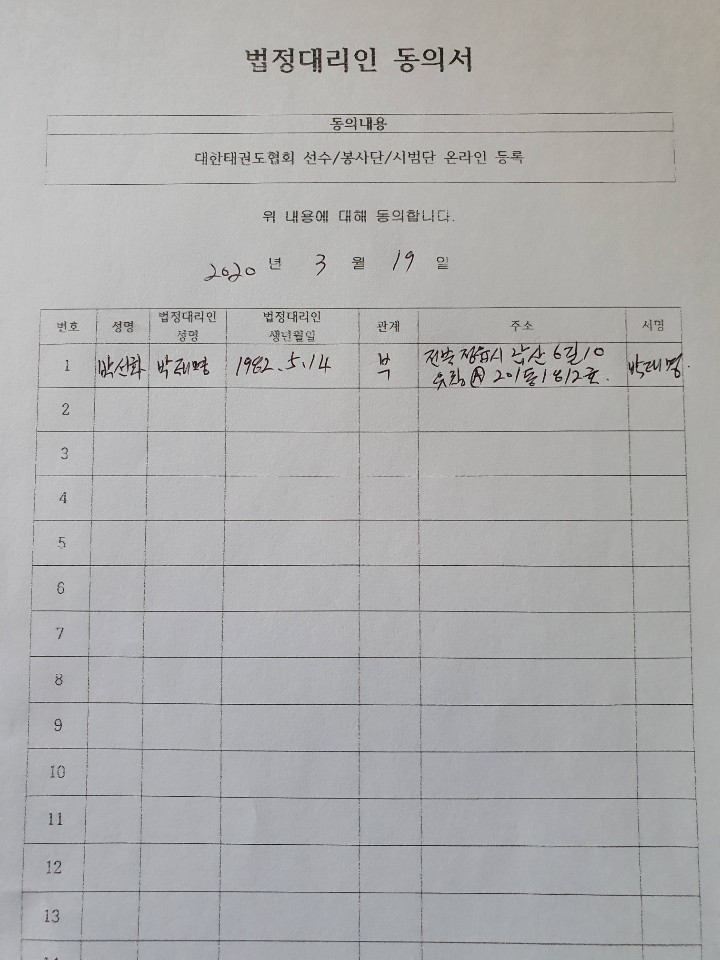 법정대리인 동의서
동의내용
대한태권도협회 선수/봉사단/시범단 온라인 등록
위 내용에 대해 동의합니다.
2020 년 3 월 19 일
번호 성명 법정대리인 성명 법정대리인 생년월일 관계 주소 서명
1 박선화 박태명 1982.5.14 부 전북 정읍시 산 6길 10
201동 1812호. 박태명.
2
3
4
5
6
7
8
9
10
11
12
13